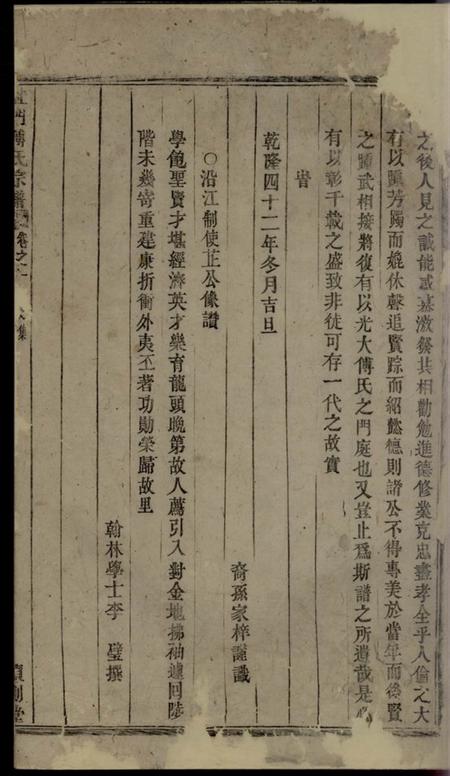 之後人見之誠能感慕激發其相勸勉進德修業克忠盡孝全乎人倫之大
有以躡芳躅而媲休聲追賢踪而紹懿德則諸公不得專美於當年而後賢
之踵武相接將復有以光大傅氏之門庭也又豈止爲斯譜之所遺哉是必
有以彰千載之盛致非徒可存一代之故實
旹
乾隆四十二年冬月吉旦
裔孫家梓謹識
○沿江制使芷公像讚
學飽聖賢才堪經濟英才樂育龍頭晚第故人薦引入對金地拂袖遽回陟
階未幾寄重建康折衝外夷丕著功勛榮歸故里
翰林學士李 璧撰
門傅氏宗譜 卷之